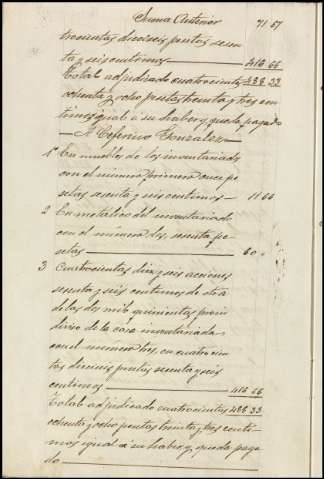 Suma Anterior 71 67
trocientas dieciseis pesetas sesen
ta y seis centimos 416 66
Total adjudicado cuatrocientas 488 33
ochenta y ocho pesetas treinta y tres cen
timos igual á su haber y queda pagado
A Ceferino Gonzalez
1 En muebles de los inventariados
con el número primero once pe
setas sesenta y seis centimos 11 66
2 En metalico del inventariado
con el número dos, sesenta pe
setas 60 "
3 Cuatrocientas diez y seis acciones
sesenta y seis centimos de otra
de las dos mil quinientas proin
diviso de la casa inventariada
con el número tres, en cuatrocien
tas dieciseis pesetas sesenta y seis
centimos 416 66
Total adjudicado cuatrocientas 488 33
ochenta y ocho pesetas treinta y tres centi
mos igual á su haber y queda paga
do